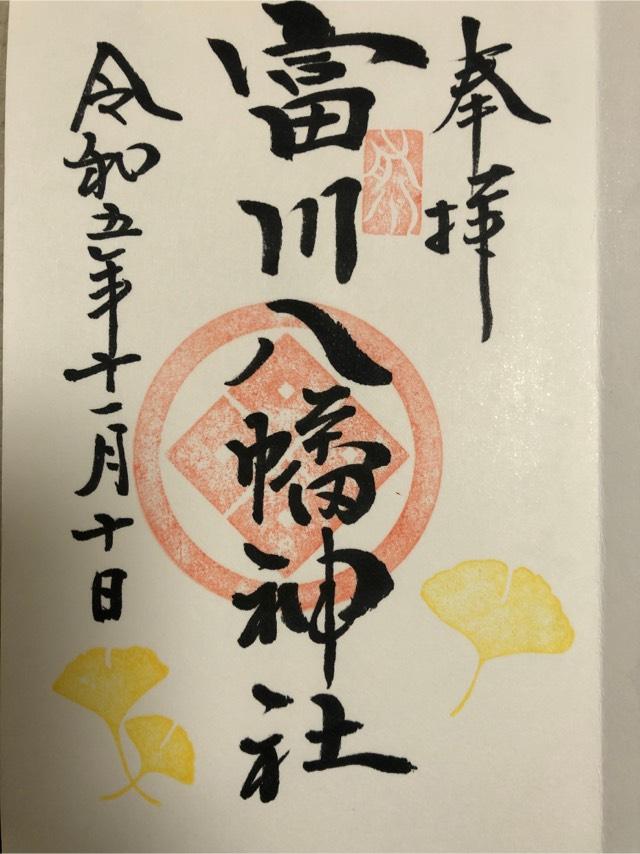 奉拝
富川八幡神社
令和五年十一月十日